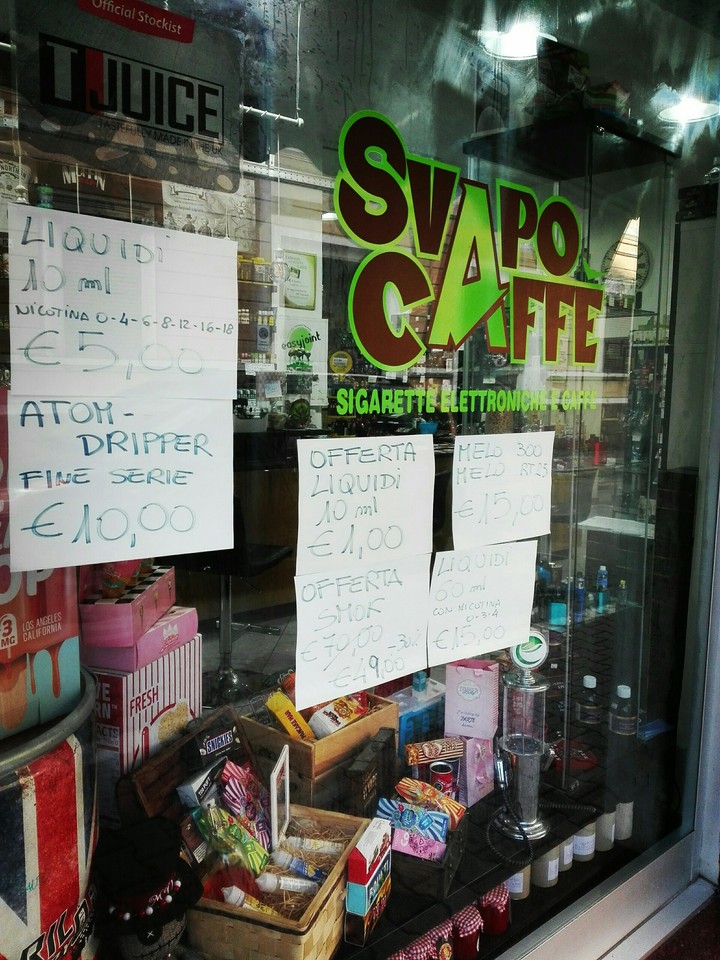 Official Stockist
T JUICE
TASTEFULLY MADE IN THE UK
SVAPO
CAFFE
SIGARETTE ELETTRONICHE E CAFFE
easyjoint
LIQUIDI
10 ml
NICOTINA 0-4-6-8-12-16-18
€ 5,00
ATOM-
DRIPPER
FINE SERIE
€ 10,00
OFFERTA
LIQUIDI
10 ml
€ 1,00
MELO 300
MELO RT 25
€ 15,00
OFFERTA
SMOK
€ 70,00 -30%
€ 49,00
LIQUIDI
60 ml
CON NICOTINA
0-3-4
€ 15,00
3
MG
LOS ANGELES
CALIFORNIA
FRESH
SNICKERS